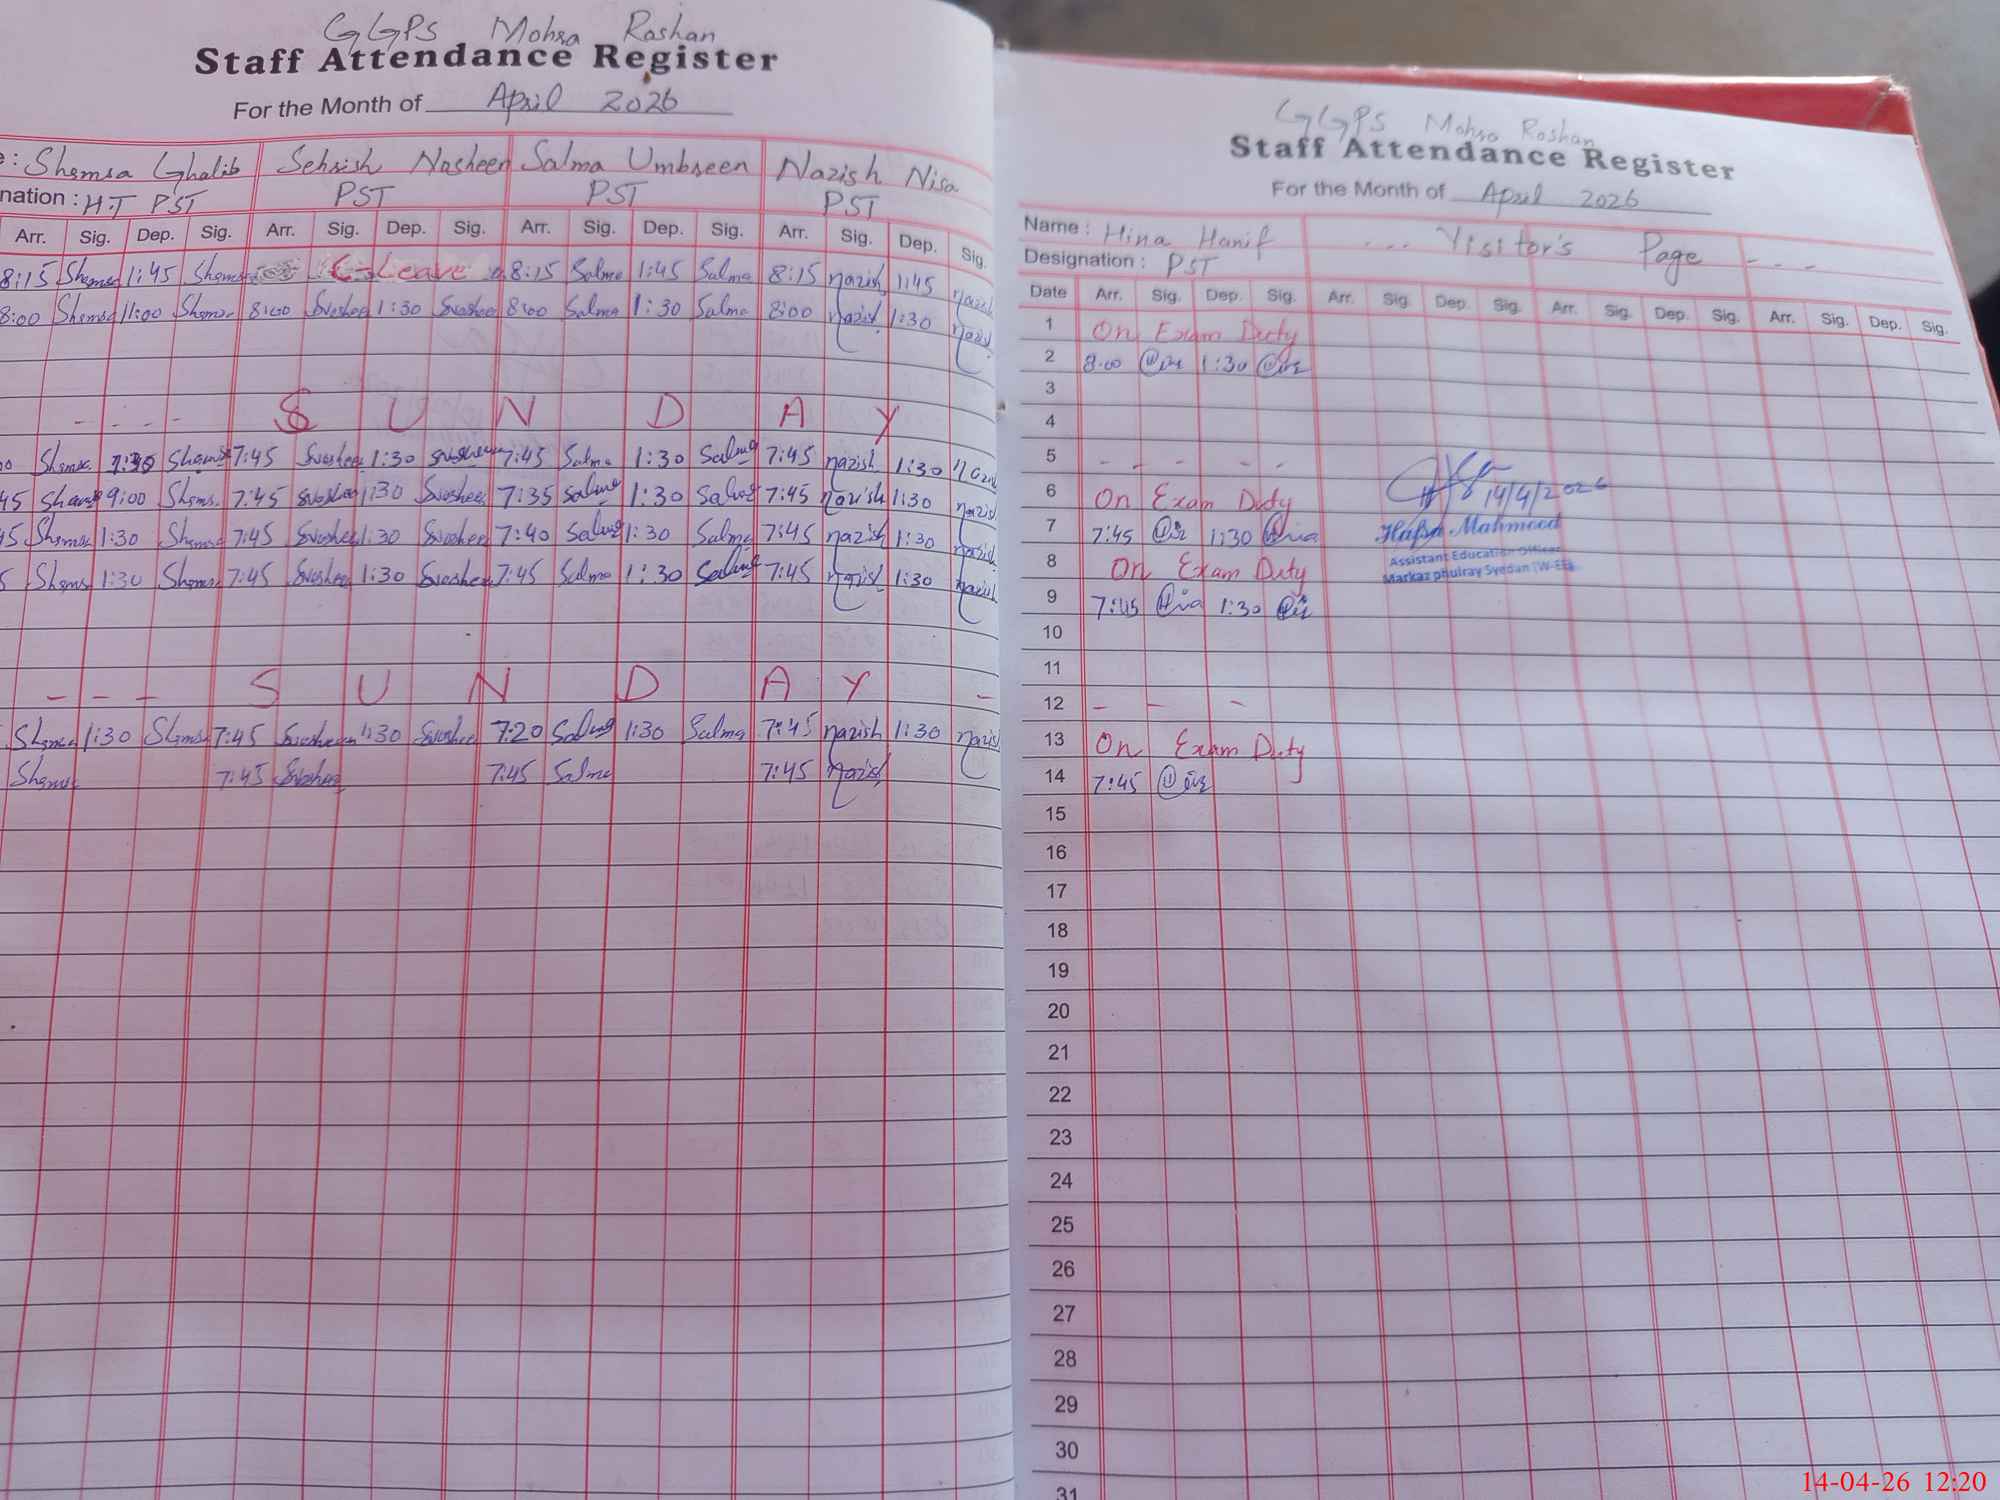 GGPS Mohra Roshan
Staff Attendance Register
For the Month of April 2026
: Shamsa Ghalib Sehrish Nosheen Salma Umbreen Nazish Nisa
nation : H.T PST PST PST PST
Arr. Sig. Dep. Sig. Arr. Sig. Dep. Sig. Arr. Sig. Dep. Sig. Arr. Sig. Dep. Sig.
8:15 Shamsa 1:45 Shamsa C-Leave 8:15 Salma 1:45 Salma 8:15 Nazish 1:45 Nazish
8:00 Shamsa 11:00 Shamsa 8:00 Nosheen 1:30 Nosheen 8:00 Salma 1:30 Salma 8:00 Nazish 1:30 Nazish
- - - - S U N D A Y
Shamsa Shamsa 7:45 Nosheen 1:30 Nosheen 7:45 Salma 1:30 Salma 7:45 Nazish 1:30 Nazish
45 Shamsa 9:00 Shamsa 7:45 Nosheen 1:30 Nosheen 7:35 Salma 1:30 Salma 7:45 Nazish 1:30 Nazish
45 Shamsa 1:30 Shamsa 7:45 Nosheen 1:30 Nosheen 7:40 Salma 1:30 Salma 7:45 Nazish 1:30 Nazish
5 Shamsa 1:30 Shamsa 7:45 Nosheen 1:30 Nosheen 7:45 Salma 1:30 Salma 7:45 Nazish 1:30 Nazish
- - - S U N D A Y -
Shamsa 1:30 Shamsa 7:45 Nosheen 1:30 Nosheen 7:20 Salma 1:30 Salma 7:45 Nazish 1:30 Nazish
Shamsa 7:45 Nosheen 7:45 Salma 7:45 Nazish
GGPS Mohra Roshan
Staff Attendance Register
For the Month of April 2026
Name : Hina Hanif - - - Visitor's Page - - -
Designation : PST
Date Arr. Sig. Dep. Sig. Arr. Sig. Dep. Sig. Arr. Sig. Dep. Sig. Arr. Sig. Dep. Sig.
1 On Exam Duty
2 8:00 1:30
3
4
5 - - - - -
6 On Exam Duty 14/4/2026
7 7:45 1:30 Hafsa Mahmood
8 On Exam Duty Assistant Education Officer
Markaz phulray Syedan (W-EE)
9 7:45 1:30
10
11
12 - - -
13 On Exam Duty
14 7:45
15
16
17
18
19
20
21
22
23
24
25
26
27
28
29
30
31
14-04-26 12:20